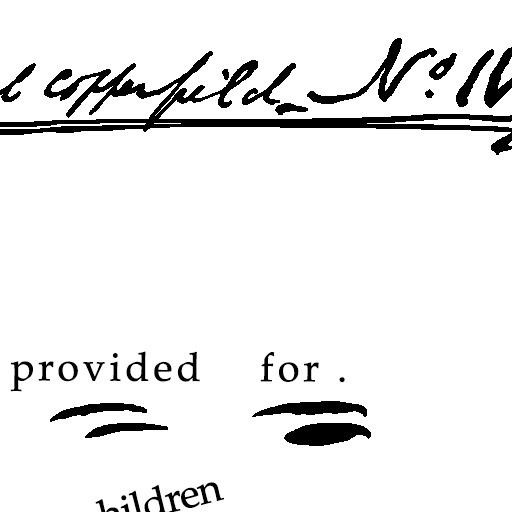 l Copperfield_ No. IV
provided for .
hildren